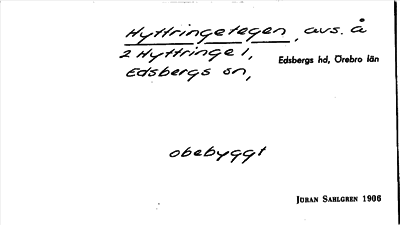 Hyttringetegen, avs. å
2 Hyttringe 1, Edsbergs hd, Örebro län
Edsbergs sn,
obebyggt
JÖRAN SAHLGREN 1906